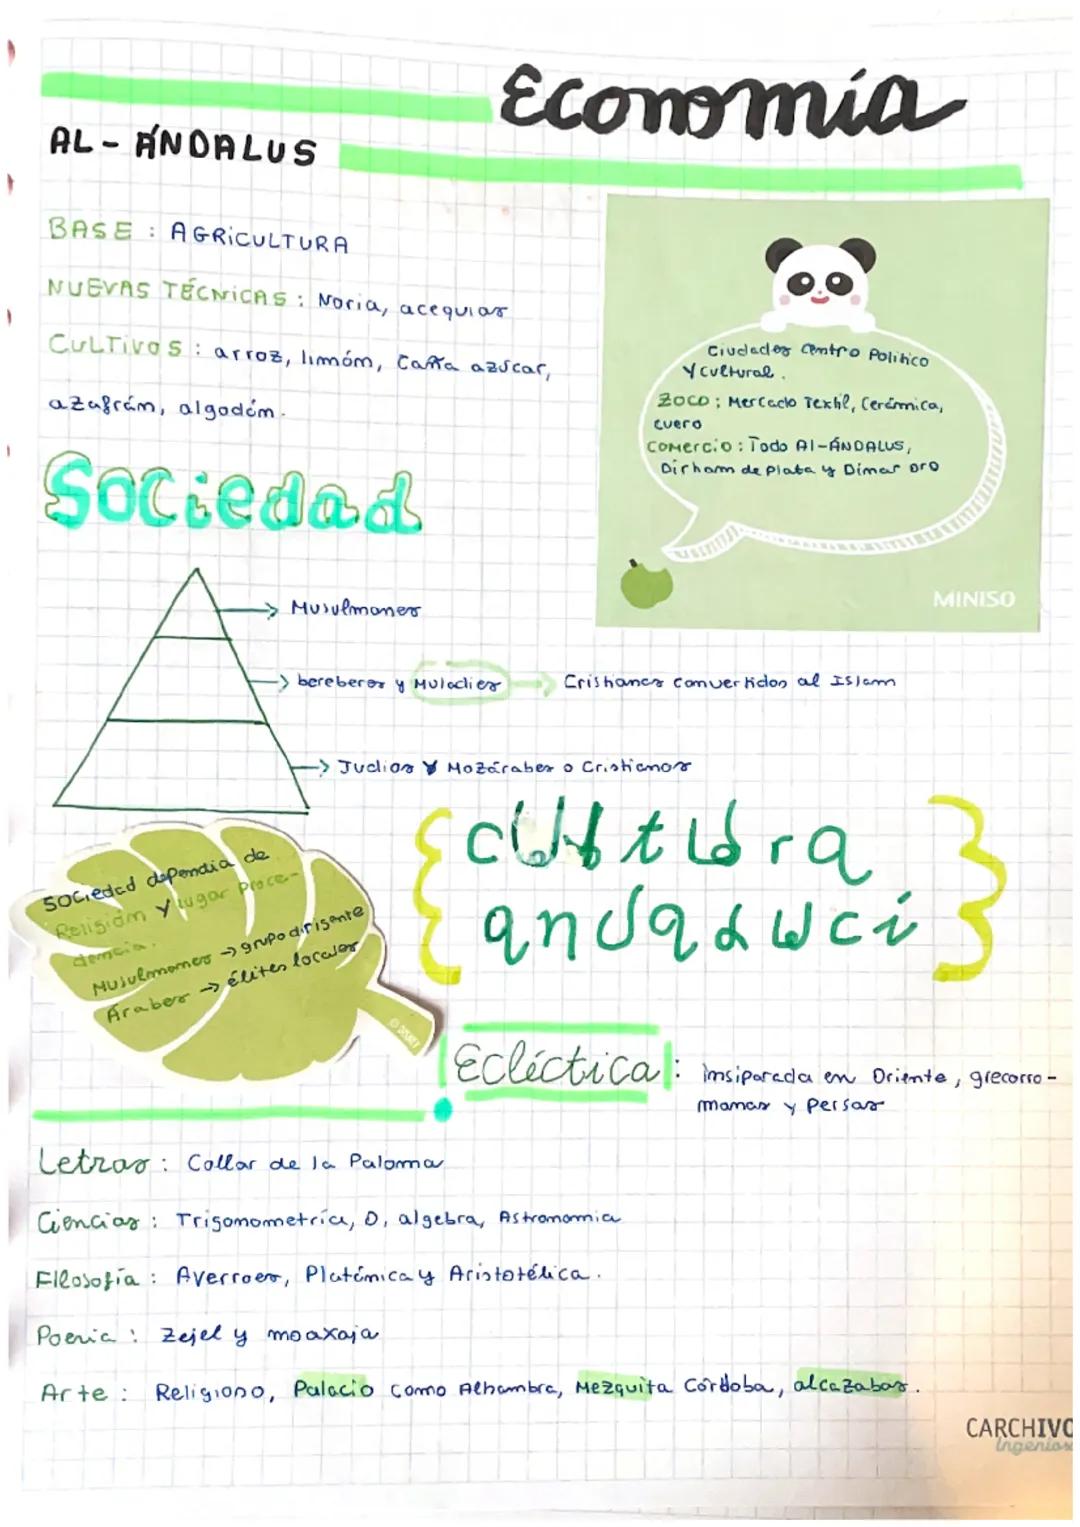 Economía
AL-ÁNDALUS
BASE : AGRICULTURA
NUEVAS TÉCNICAS : Noria, acequias
CULTIVOS : arroz, limón, Caña azúcar,
azafrán, algodón.
Ciudades centro Político
y cultural.
ZOCO ; Mercado Textil, Cerámica,
cuero
COMERCIO : Todo Al-ÁNDALUS,
Dirham de plata y Dinar oro
MINISO
Sociedad
→ Musulmanes
→ bereberes y Muladíes → Cristianos convertidos al Islam
→ Judios y Mozárabes o Cristianos
Sociedad dependia de
Religión y lugar proce-
dencia.
Musulmanes → grupo dirigente
Árabes → élites locales
© DISNEY
{ cultura
andaluci }
Ecléctica : insiparada en Oriente, grecorro-
manas y Persas
Letras : Collar de la Paloma
Ciencias : Trigonometría, 0, algebra, Astronomia
Filosofía : Averroes, Platónica y Aristotélica.
Poesia : Zejel y moaxaja
Arte : Religioso, Palacio como Alhambra, Mezquita Córdoba, alcazabas.
CARCHIVO
Ingenios